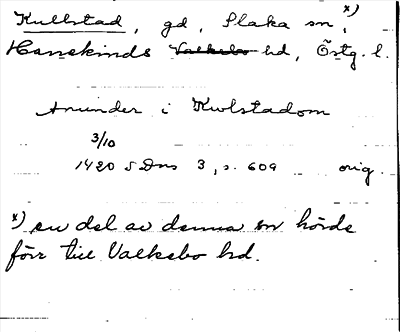 Kullstad, gd, Slaka sn, x)
Hanekinds Valkebo hd, Östg. l.
Anunder i Kwlstadom
3/10
1420 SDns 3, s. 609 orig.
x) en del av denna sn hörde
förr till Valkebo hd.